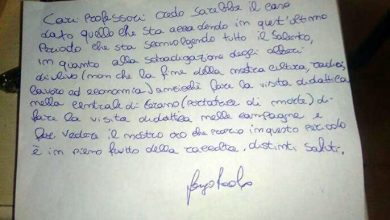 Cari Professori credo sarebbe il caso
dato quello che sta accadendo in quest'ultimo
Periodo che sta sconvolgendo tutto il Salento,
in quanto alla sdradicazione degli alberi
di ulivo (non che la fine della nostra cultura, radici,
lavoro ed economia) anziché fare la visita didattica
nella centrale di Cerano (portatrice di morte) di
fare la visita didattica nelle campagne e
far vedere il nostro oro che proprio in questo periodo
è in pieno frutto della raccolta. distinti saluti.